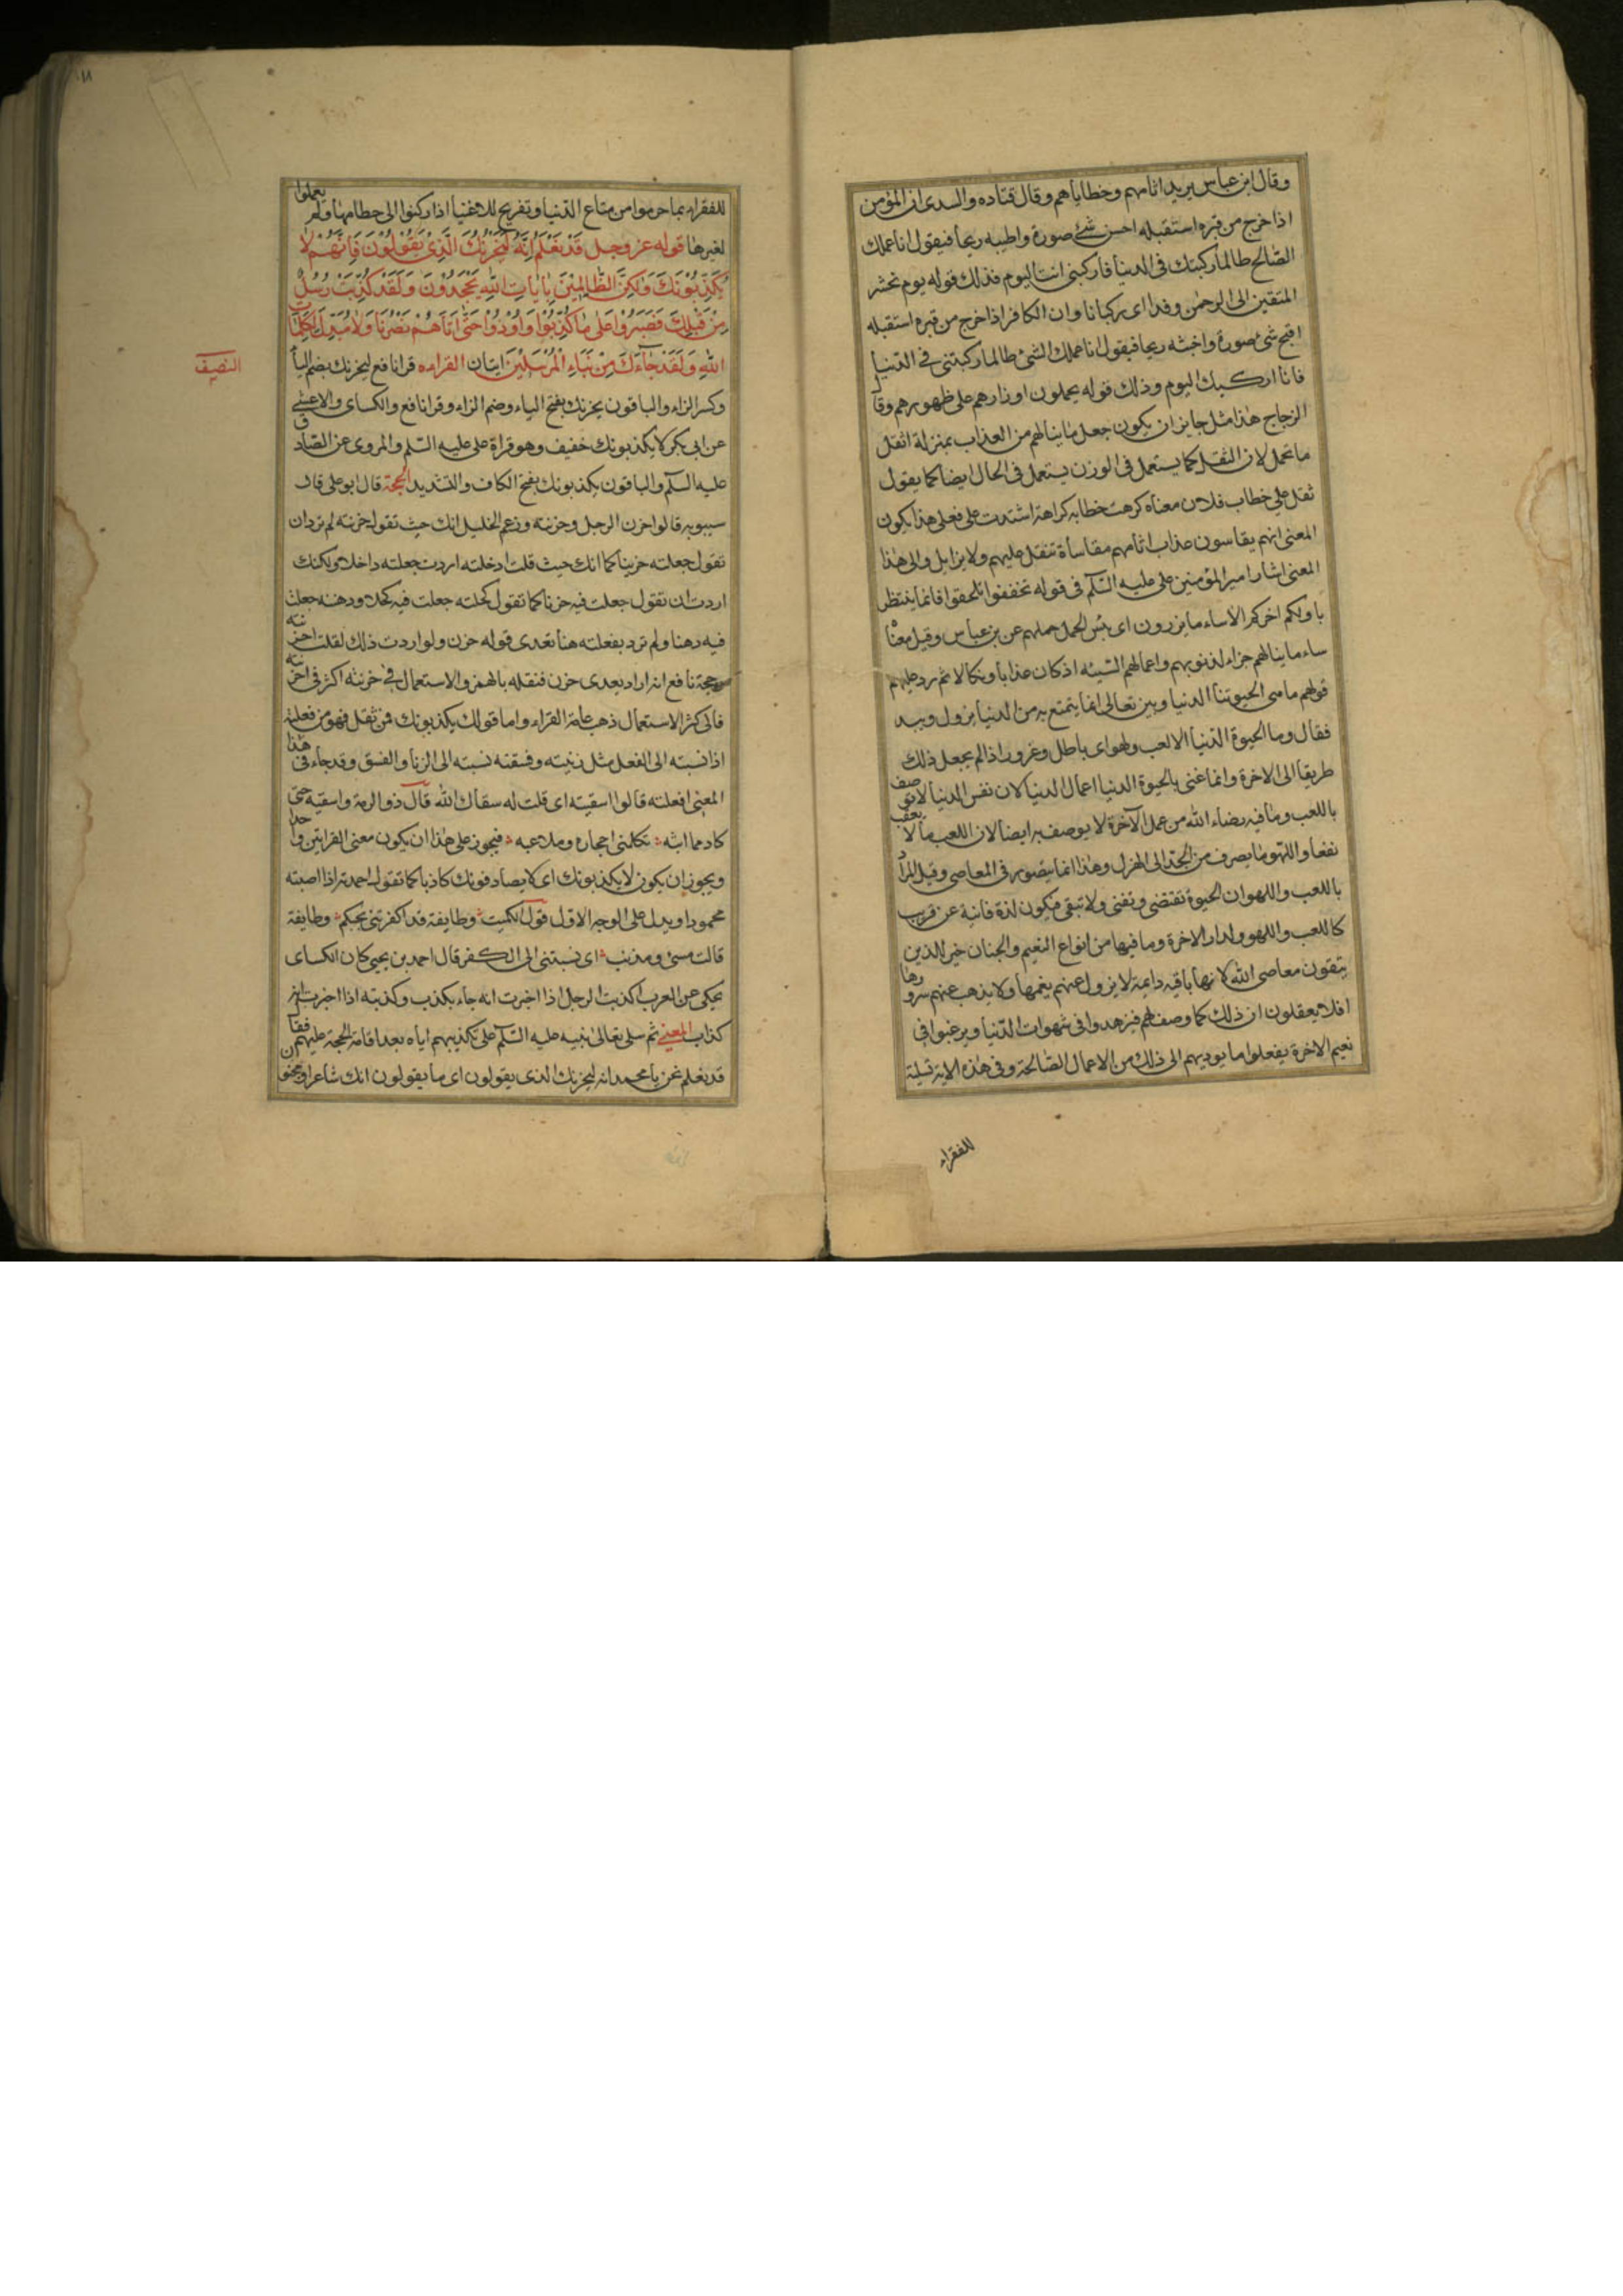 وقال ابن عباس يريد اثامهم وخطاياهم وقال قتاده والسدى ان المؤمن
اذا خرج من قبره استقبله احسن شئ صورة واطيبه ريحا فيقول انا عملك
الصالح طالما ركبتك فى الدنيا فاركبنى انت اليوم فذلك قوله يوم نحشر
المتقين الى الرحمن وفدا اى ركبانا وان الكافر اذا خرج من قبره استقبله
اقبح شئ صورة واخبثه ريحا فيقول انا عملك السئ طالما ركبتنى فى الدنيا
فانا اركبك اليوم وذلك قوله يحملون اوزارهم على ظهورهم وقال
الزجاج هذا مثل جايز ان يكون جعل ما ينالهم من العذاب بمنزلة اثقل
ما تحمل لان الثقل كما يستعمل فى الوزن يستعمل فى الحال ايضا كما يقول
ثقل على خطاب فلان معناه كرهت خطابه كراهة اشتدت على فعلى هذا يكون
المعنى انهم يقاسون عذاب اثامهم مقاساة تثقل عليهم ولا يزايل والى هذا
المعنى اشار امير المؤمنين على عليه السلم فى قوله تخففوا تلحقوا فانما ينتظر
باولكم اخركم الا ساء ما يزرون اى بئس الحمل حملهم عن بن عباس وقيل معناه
ساء ما ينالهم جزاء لذنوبهم واعمالهم السيئه اذ كان عذابا ونكالا ثم رد عليهم
قولهم ما هى الا حيوتنا الدنيا وبين تعالى ان ما يتمتع به من الدنيا يزول ويبيد
فقال وما الحيوة الدنيا الا لعب ولهو اى باطل وغرور اذا لم يجعل ذلك
طريقا الى الاخرة وانما عنى بالحيوة الدنيا اعمال الدنيا لان نفس الدنيا لا توصف
باللعب وما فيه رضاء الله من عمل الآخرة لا يوصف به ايضا لان اللعب ما لا يعقب
نفعا واللهو ما يصرف من الجد الى الهزل وهذا انما يتصور فى المعاصى وقيل المراد
باللعب واللهو ان الحيوة تنقضى وتفنى ولا تبقى فيكون لذة فانية عن قريب
كاللعب واللهو ولدار الاخرة وما فيها من انواع النعيم والجنان خير للذين
يتقون معاصى الله لانها باقيه دايمة لا يزول عنهم نعيمها ولا يذهب عنهم سرورها
افلا يعقلون ان ذلك كما وصف لهم فيزهدوا فى شهوات الدنيا ويرغبوا فى
نعيم الاخرة بفعلوا ما يوديهم الى ذلك من الاعمال الصالحة وفى هذه الاية تسلية
للفقراء
للفقراء بما حرموا من متاع الدنيا وتقريع للاغنياء اذا ركنوا الى حطامها ولم يعملوا
لغيرها قوله عز وجل قَدْ نَعْلَمُ اِنَّهُ لَيَحْزُنُكَ الَّذِى يَقُوْلُوْنَ فَاِنَّهُمْ لَا
يُكَذِّبُوْنَكَ وَلٰكِنَّ الظَّالِمِيْنَ بِاٰيَاتِ اللهِ يَجْحَدُوْنَ وَلَقَدْ كُذِّبَتْ رُسُلٌ
مِنْ قَبْلِكَ فَصَبَرُوْا عَلٰى مَا كُذِّبُوْا وَاُوْذُوْا حَتّٰى اَتَاهُمْ نَصْرُنَا وَلَا مُبَدِّلَ لِكَلِمَاتِ
اللهِ وَلَقَدْ جَآءَكَ مِنْ نَبَاءِ الْمُرْسَلِيْنَ ايتان القراءه قرا نافع ليحزنك بضم اليا
النصف
وكسر الزاء والباقون يحزنك بفتح الياء وضم الزاء وقرا نافع والكساى والاعشى
عن ابى بكر لا يكذبونك خفيف وهو قراة على عليه السلم والمروى عن الصادق
عليه السلم والباقون يكذبونك بفتح الكاف والتشديد الحجة قال ابو على قال
سيبويه قالوا حزن الرجل وحزنته وزعم الخليل انك حيث تقول حزنته لم ترد ان
تقول جعلته حزينا كما انك حيث قلت ادخلته اردت جعلته داخلا ولكنك
اردت ان تقول جعلت فيه حزنا كما تقول كحلته جعلت فيه كحلا ودهنته جعلت
فيه دهنا ولم ترد بفعلته هنا تعدى قوله حزن ولو اردت ذلك لقلت احزنته
وحجة نافع انه اراد تعدى حزن فنقله بالهمز والاستعمال فى حزنته اكثر فى احزنته
فالى كثر الاستعمال ذهب عامة القراء واما قولك يكذبونك فمن ثقل فهو من فعلته
اذا نسبته الى الفعل مثل زنيته وفسقته نسبته الى الزنا والفسق وقد جاء فى هذا
المعنى افعلته قالوا اسقيته اى قلت له سقاك الله قال ذو الرمة واسقيه حتى
كاد مما ابثه تكلمنى احجاره وملاعبه فيجوز على هذا ان يكون معنى القراتين واحدا
ويجوز ان يكون لا يكذبونك اى لا يصادفونك كاذبا كما تقول احمدته اذا اصبته
محمودا ويدل على الوجه الاول قول الكميت وطايفة قد اكفرتنى بحبكم وطايفة
قالت مسئ ومذنب اى نسبتنى الى الكفر قال احمد بن يحيى كان الكساى
يحكى عن العرب اكذبت الرجل اذا اخبرت انه جاء بكذب وكذبته اذا اخبرت انه
كذاب المعنى ثم سلى تعالى نبيه عليه السلم على تكذيبهم اياه بعد اقامة الحجة عليهم فقال
قد نعلم نحن يا محمد انه ليحزنك الذى يقولون اى ما يقولون انك شاعر او مجنون